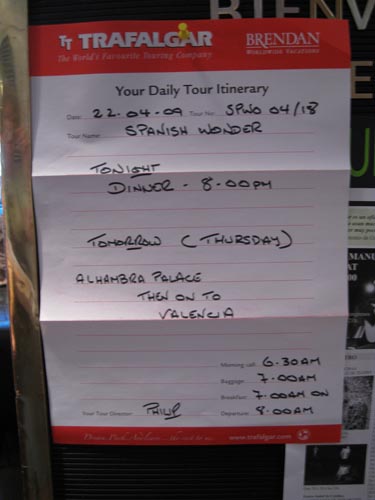 BIENV
TT TRAFALGAR
The World's Favourite Touring Company
BRENDAN
WORLDWIDE VACATIONS
Your Daily Tour Itinerary
Date: 22.04.09 Tour No: SPWO 04/18
Tour Name: SPANISH WONDER
TONIGHT
DINNER - 8.00PM
TOMORROW (THURSDAY)
ALHAMBRA PALACE
THEN ON TO
VALENCIA
Morning call: 6.30AM
Baggage: 7.00AM
Breakfast: 7.00AM ON
Your Tour Director: PHILIP Departure: 8.00AM
www.trafalgar.com